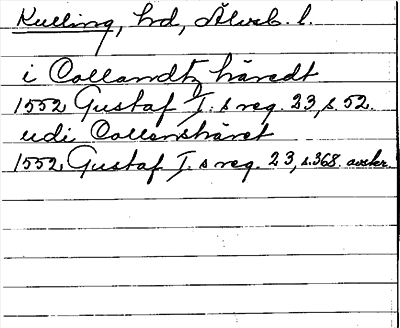 Kulling, hd, Älvsb. l.
i Collandtz häredt
1552 Gustaf I. s reg. 23, s. 52.
udi Collenshäret
1552 Gustaf I. s reg. 23, s. 368. avskr.